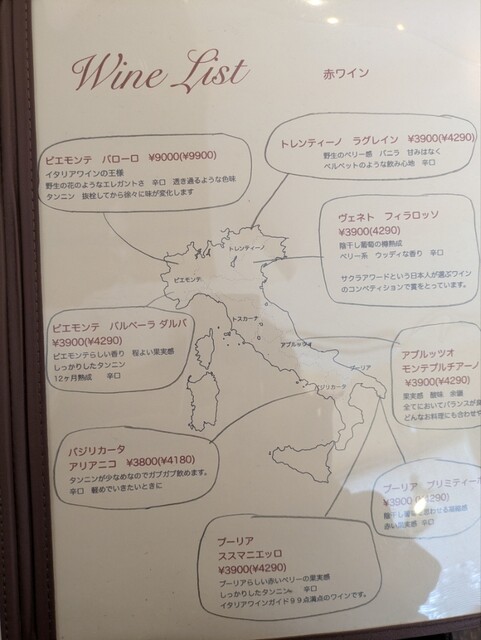 Wine List
赤ワイン
ピエモンテ　バローロ　¥9000(¥9900)
イタリアワインの王様
野生の花のようなエレガントさ　辛口　透き通るような色味
タンニン　抜栓してから徐々に味が変化します
トレンティーノ　ラグレイン　¥3900(¥4290)
野生のベリー感　バニラ　甘みはなく
ベルベットのような飲み心地　辛口
ヴェネト　フィラロッソ
¥3900(4290)
陰干し葡萄の樽熟成
ベリー系　ウッディな香り　辛口
サクラアワードという日本人が選ぶワイン
のコンペティションで賞をとっています。
トレンティーノ
ピエモンテ
トスカーナ
アブルッツオ
プーリア
バジリカータ
ピエモンテ　バルベーラ ダルバ
¥3900(¥4290)
ピエモンテらしい香り　程よい果実感
しっかりしたタンニン
12ヶ月熟成　　辛口
アブルッツオ
モンテプルチアーノ
¥3900(¥4290)
果実感　酸味　余韻
全てにおいてバランスが良
どんなお料理にも合わせや
バジリカータ
アリアニコ　¥3800(¥4180)
タンニンが少なめなのでガブガブ飲めます。
辛口　軽めでいきたいときに
プーリア　プリミティーボ
¥3900(¥4290)
陰干し葡萄を思わせる凝縮感
赤い果実感　辛口
プーリア
ススマニエッロ
¥3900(¥4290)
プーリアらしい赤いベリーの果実感
しっかりしたタンニン　　辛口
イタリアワインガイド９９点満点のワインです。